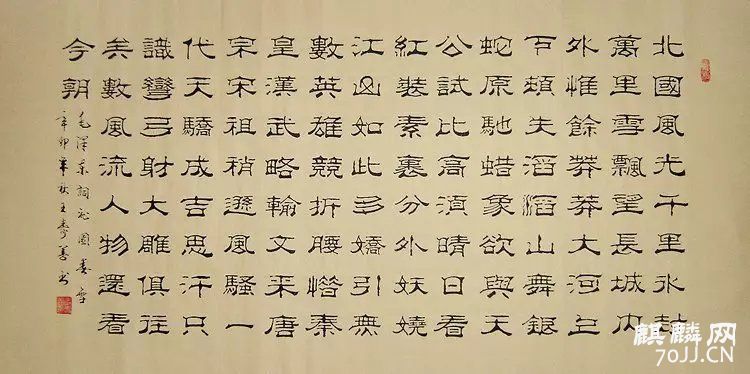 北國風光千里冰封
萬里雪飄望長城內
外惟餘莽莽大河上
下頓失滔滔山舞銀
蛇原馳蜡象欲與天
公試比高須晴日看
紅裝素裹分外妖嬈
江山如此多嬌引無
數英雄競折腰惜秦
皇漢武略輸文采唐
宗宋祖稍遜風騷一
代天驕成吉思汗只
識彎弓射大雕俱往
矣數風流人物還看
今朝
毛澤東詞沁園春雪
辛卯年秋王善书
麒麟网
70JJ.CN